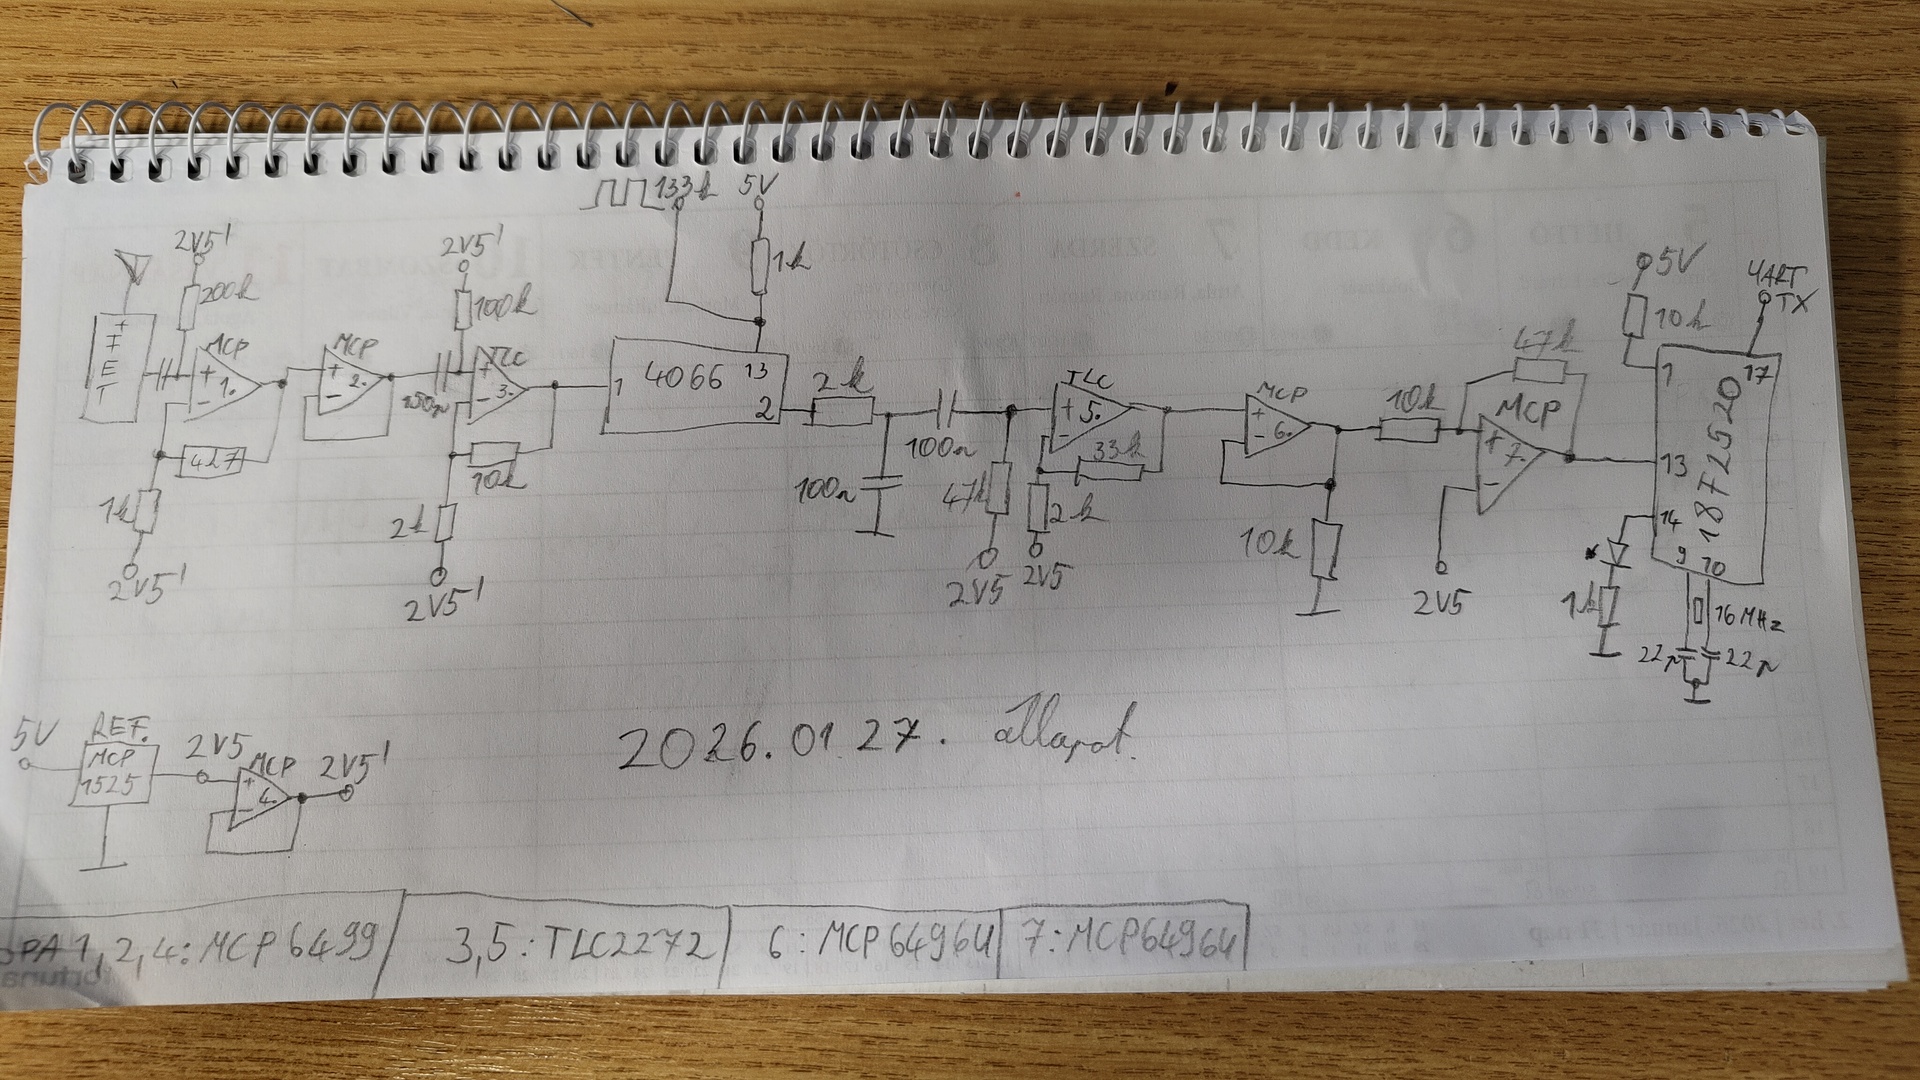 133k 5V
2V5' 2V5' 1k
200k 100k
5V UART TX
10k
FET
MCP MCP TLC
+ 1. - + 2. - + 3. -
150n
1 4066 13
2
2k
4k7 10k
1k 2k
2V5' 2V5'
100n 100n
47k
TLC
+ 5. -
33k
2k
2V5 2V5
MCP
+ 6. -
10k
10k
47k
MCP
+ 7. -
2V5
1 17
13
14
9 10
18F2520
1k
16MHz
22p 22p
5V REF. 2V5 MCP 2V5'
MCP 1525
+ 4. -
2026.01.27. állapot.
OPA 1,2,4: MCP6499 3,5: TLC2272 6: MCP6496U 7: MCP6496U